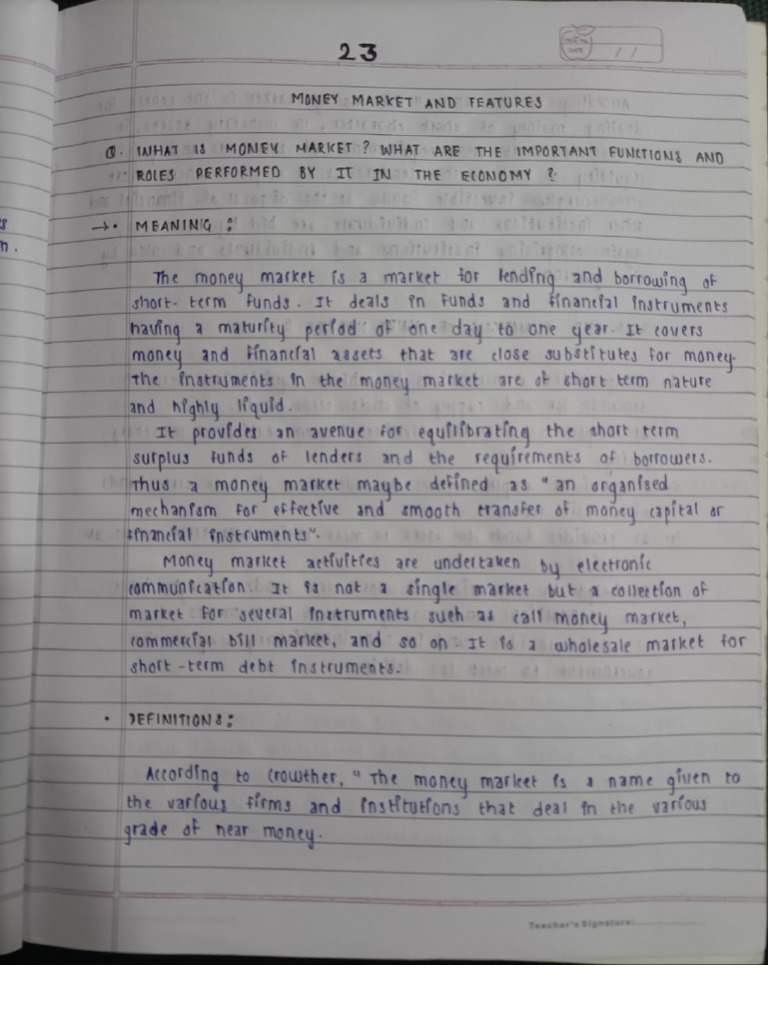 23
DATE / /
MONEY MARKET AND FEATURES
Q. WHAT IS MONEY MARKET ? WHAT ARE THE IMPORTANT FUNCTIONS AND
ROLES PERFORMED BY IT IN THE ECONOMY ?
→• MEANING :
The money market is a market for lending and borrowing of
short-term funds. It deals in funds and financial instruments
having a maturity period of one day to one year. It covers
money and financial assets that are close substitutes for money.
The instruments in the money market are of short term nature
and highly liquid.
It provides an avenue for equilibrating the short term
surplus funds of lenders and the requirements of borrowers.
Thus a money market maybe defined as "an organised
mechanism for effective and smooth transfer of money capital or
financial instruments".
Money market activities are undertaken by electronic
communication. It is not a single market but a collection of
market for several instruments such as call money market,
commercial bill market, and so on. It is a wholesale market for
short-term debt instruments.
• DEFINITIONS :
According to Crowther, "The money market is a name given to
the various firms and institutions that deal in the various
grade of near money.
Teacher's Signature: